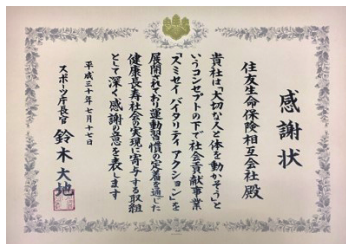 感謝状
住友生命保険相互会社 殿
貴社は「大切な人と体を動かそう」と
いうコンセプトの下で社会貢献事業
「スミセイ バイタリティ アクション」を
展開されており運動習慣の定着を通じた
健康長寿社会の実現に寄与する取組
として深く感謝の意を表します
平成三十年七月十七日
スポーツ庁長官 鈴木大地